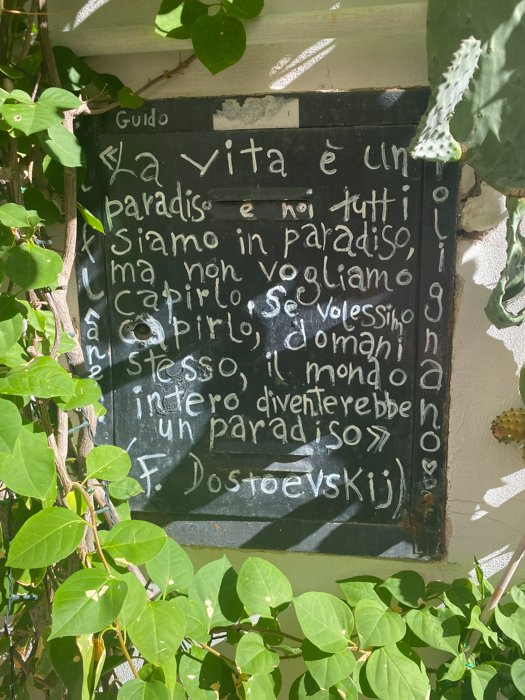 Guido
«La vita è un
paradiso e noi tutti
siamo in paradiso,
ma non vogliamo
capirlo. Se volessimo
capirlo, domani
stesso, il mondo
intero diventerebbe
un paradiso»
(F. Dostoevskij)
Polignano ♡